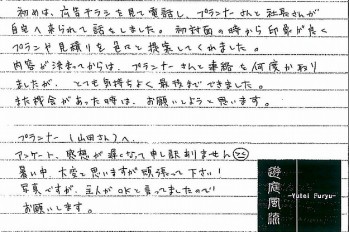 初めは、広告チラシを見て電話し、プランナーさんと社長さんが
自宅へ来られて話をしました。初対面の時から印象が良く
プランや見積りを色々と提案してくれました。
内容が決まってからは、プランナーさんと連絡を何度かとり
ましたが、とても気持ちよく最後までできました。
また機会があった時は、お願いしようと思います。
プランナー(山田さん)へ
アンケート、感想が遅くなって申し訳ありません
暑い中、大変と思いますが頑張って下さい!
写真ですが、主人がOKと言ってましたので
お願いします。
遊庭風流
-Yutei Furyu-